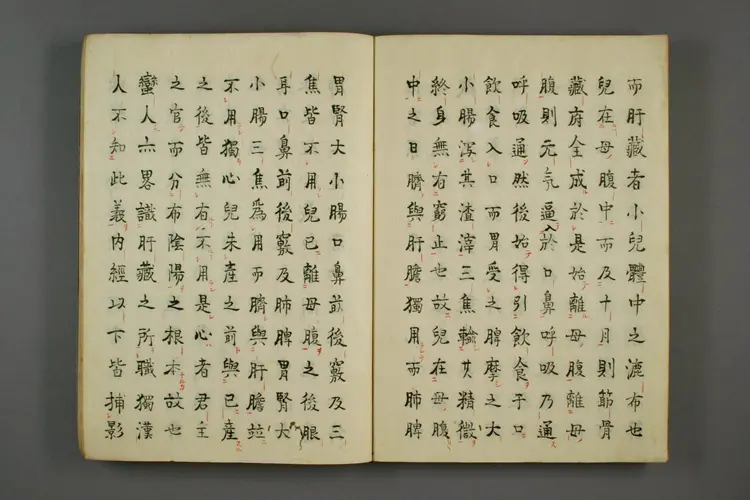 而肝藏者小兒體中之漉布也
兒在母腹中而及十月則節骨
藏府全成於是始離母腹離母
腹則元氣逼入於口鼻呼吸乃通
呼吸通然後始得引飲食于口
飲食入口而胃受之脾摩之大
小腸瀉其渣滓三焦輪其精微
終身無有窮止也故兒在母腹
中之日臍與肝膽獨用而肺脾
胃腎大小腸口鼻前後竅及三
焦皆不用兒已離母腹之後眼
耳口鼻前後竅及肺脾胃腎大
小腸三焦為用而臍與肝膽並
不用獨心兒未產之前與已產
之後皆無有不用是心者君主
之官而分布陰陽之根本故也
蠻人亦畧識肝藏之所職獨漢
人不知此義內經以下皆捕影